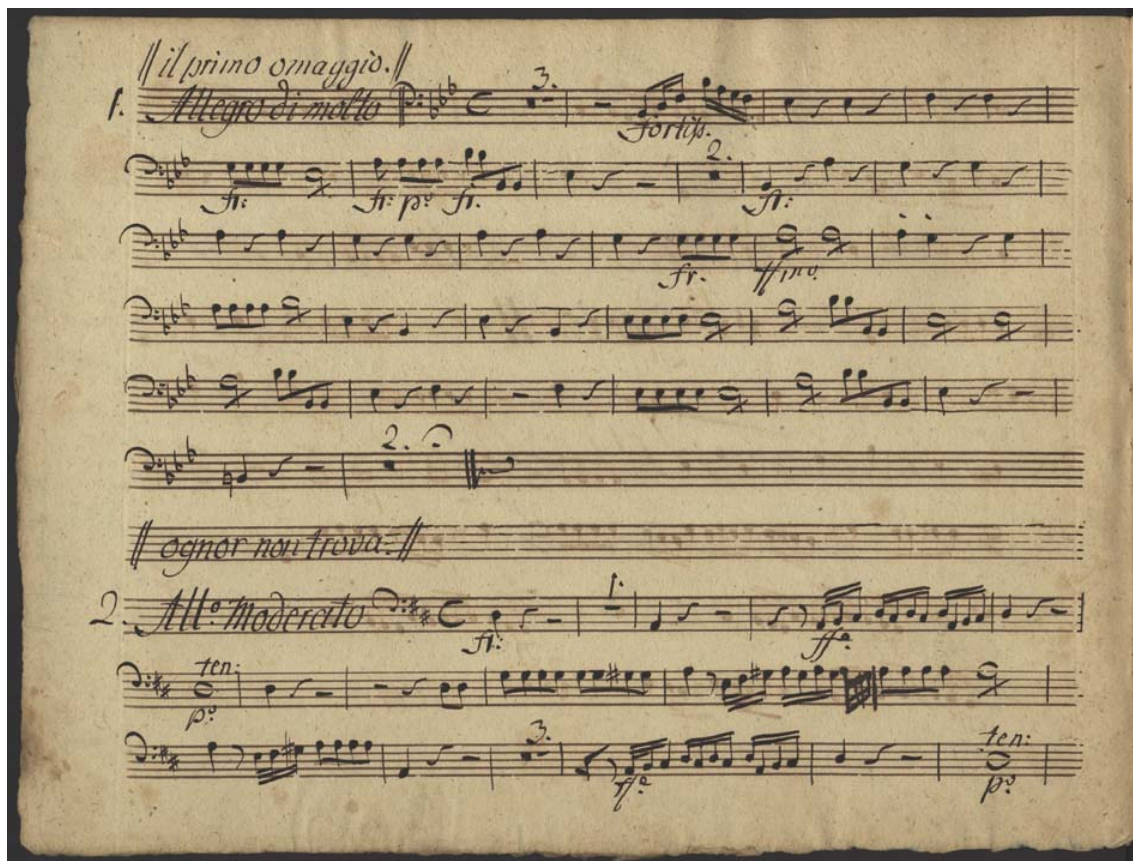 il primo omaggio.
1. Allegro di molto 3.
fortiss.
2.
fr: fr: po fr. fr:
fr. ffmo.
2.
ognor non trova.
2. Allo. Moderato 1.
fr: ffo
ten:
po
3. ten:
ffo po